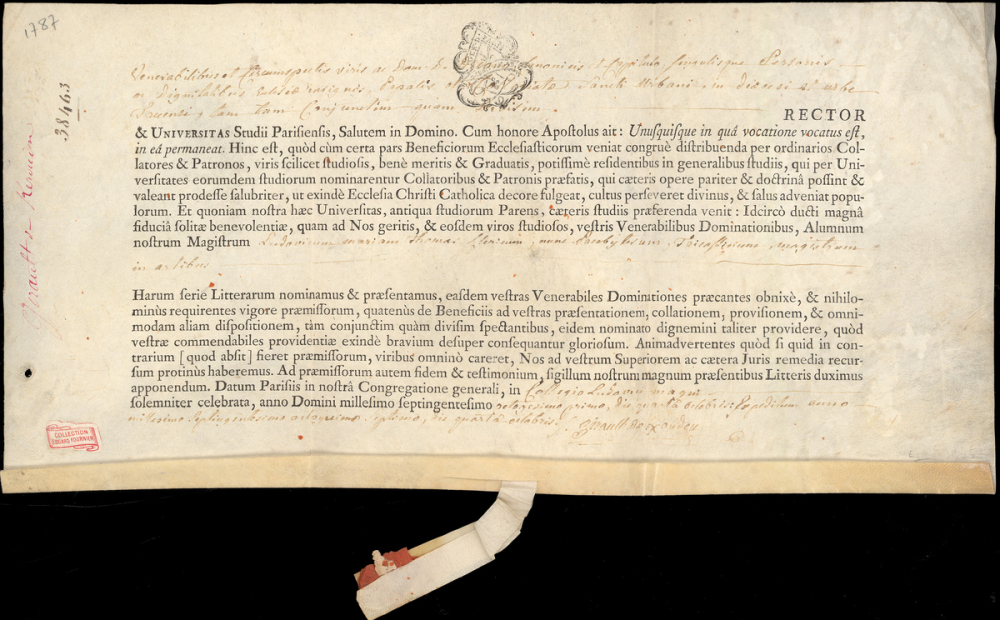 1787
38463
Venerabilibus et Circumspectis viris ac Dom
ac Dignitatibus Ecclesiæ Sancti Urbani, in diœcesi et urbe
tam Conjunctim quam
RECTOR
& UNIVERSITAS Studii Parisiensis, Salutem in Domino. Cum honore Apostolus ait : Unusquisque in quâ vocatione vocatus est,
in eâ permaneat. Hinc est, quòd cùm certa pars Beneficiorum Ecclesiasticorum veniat congruè distribuenda per ordinarios Col-
latores & Patronos, viris scilicet studiosis, benè meritis & Graduatis, potissimè residentibus in generalibus studiis, qui per Uni-
versitates eorumdem studiorum nominarentur Collatoribus & Patronis præfatis, qui cæteris opere pariter & doctrinâ possint &
valeant prodesse salubriter, ut exindè Ecclesia Christi Catholica decore fulgeat, cultus perseveret divinus, & salus adveniat popu-
lorum. Et quoniam nostra hæc Universitas, antiqua studiorum Parens, cæteris studiis præferenda venit : Idcircò ducti magnâ
fiduciâ solitæ benevolentiæ, quam ad Nos geritis, & eosdem viros studiosos, vestris Venerabilibus Dominationibus, Alumnum
nostrum Magistrum Ludovicum mariam Thomas Clericum, nunc magistrum
in artibus
Harum serie Litterarum nominamus & præsentamus, easdem vestras Venerabiles Dominationes præcantes obnixè, & nihilo-
minùs requirentes vigore præmissorum, quatenùs de Beneficiis ad vestras præsentationem, collationem, provisionem, & omni-
modam aliam dispositionem, tàm conjunctim quàm divisim spectantibus, eidem nominato dignemini taliter providere, quòd
vestræ commendabiles providentiæ exindè bravium desuper consequantur gloriosum. Animadvertentes quòd si quid in con-
trarium [ quod absit ] fieret præmissorum, viribus omninò careret, Nos ad vestrum Superiorem ac cætera Juris remedia recur-
sum protinùs haberemus. Ad præmissorum autem fidem & testimonium, sigillum nostrum magnum præsentibus Litteris duximus
apponendum. Datum Parisiis in nostrâ Congregatione generali, in Collegio Ludovici magni
solemniter celebrata, anno Domini millesimo septingentesimo octogesimo primo, die quartâ octobris: Expeditum anno
millesimo septingentesimo octogesimo septimo, die quartâ octobris.
COLLECTION
EDOUARD FOURNIER